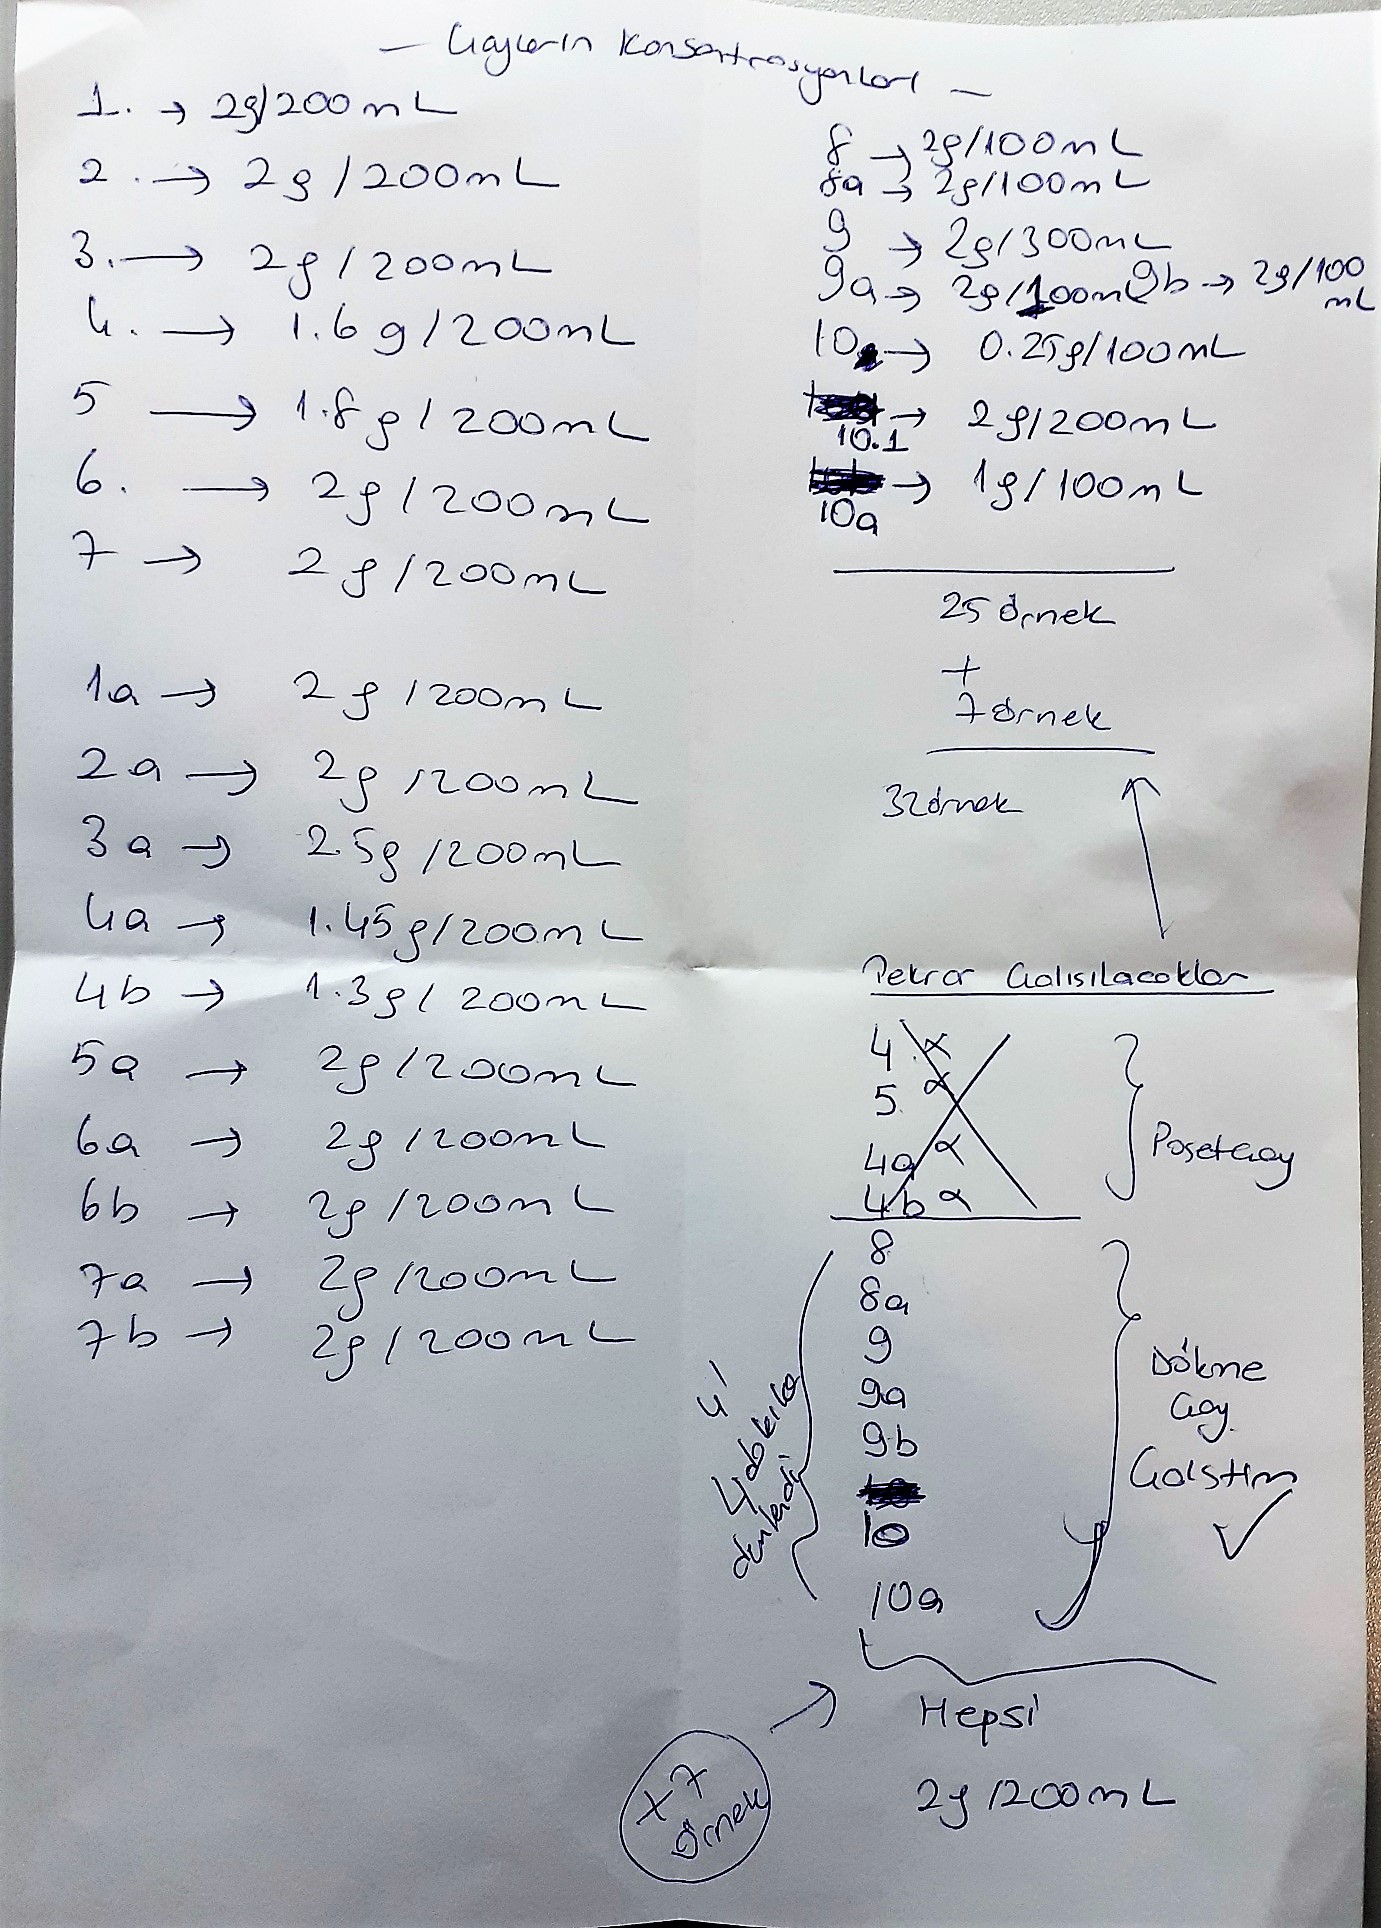 - Çayların Konsantrasyonları -
1. → 2g/200mL
2. → 2g/200mL
3. → 2g/200mL
4. → 1.6g/200mL
5 → 1.8g/200mL
6. → 2g/200mL
7 → 2g/200mL
1a → 2g/200mL
2a → 2g/200mL
3a → 2.5g/200mL
4a → 1.45g/200mL
4b → 1.3g/200mL
5a → 2g/200mL
6a → 2g/200mL
6b → 2g/200mL
7a → 2g/200mL
7b → 2g/200mL
8 → 2g/100mL
8a → 2g/100mL
9 → 2g/300mL
9a → 2g/100mL 9b → 2g/100 mL
10 → 0.25g/100mL
10.1 → 2g/200mL
10a → 1g/100mL
25 örnek
+
7 örnek
32 örnek
Tekrar Çalısılacaklar
4
5
4a
4b
Poşet çay
8
8a
9
9a
9b
10
10a
4'
4 dakika
demlendi
Dökme
Çay
Çalstım ✓
Hepsi
2g/200mL
+7
örnek